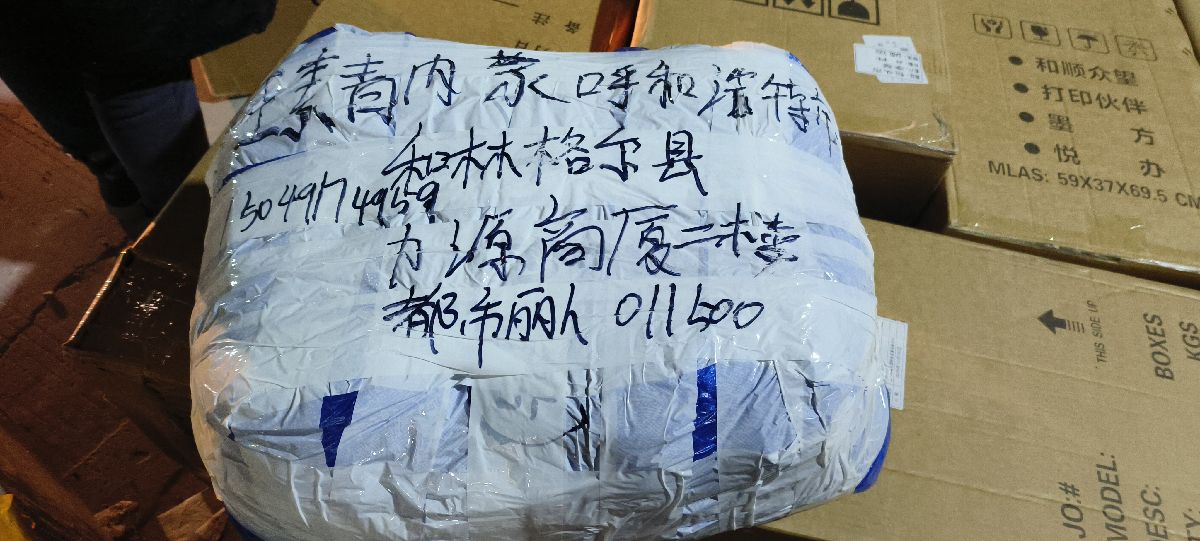 青 内 蒙 呼和浩特市
和林格尔县
15049174959
力源商厦二楼
都市丽人 011500
备注
和顺众墨
打印伙伴
墨 方
悦 办
MLAS: 59X37X69.5 CM
THIS SIDE UP
BOXES
KGS
JO:#
MODEL:
DESC: